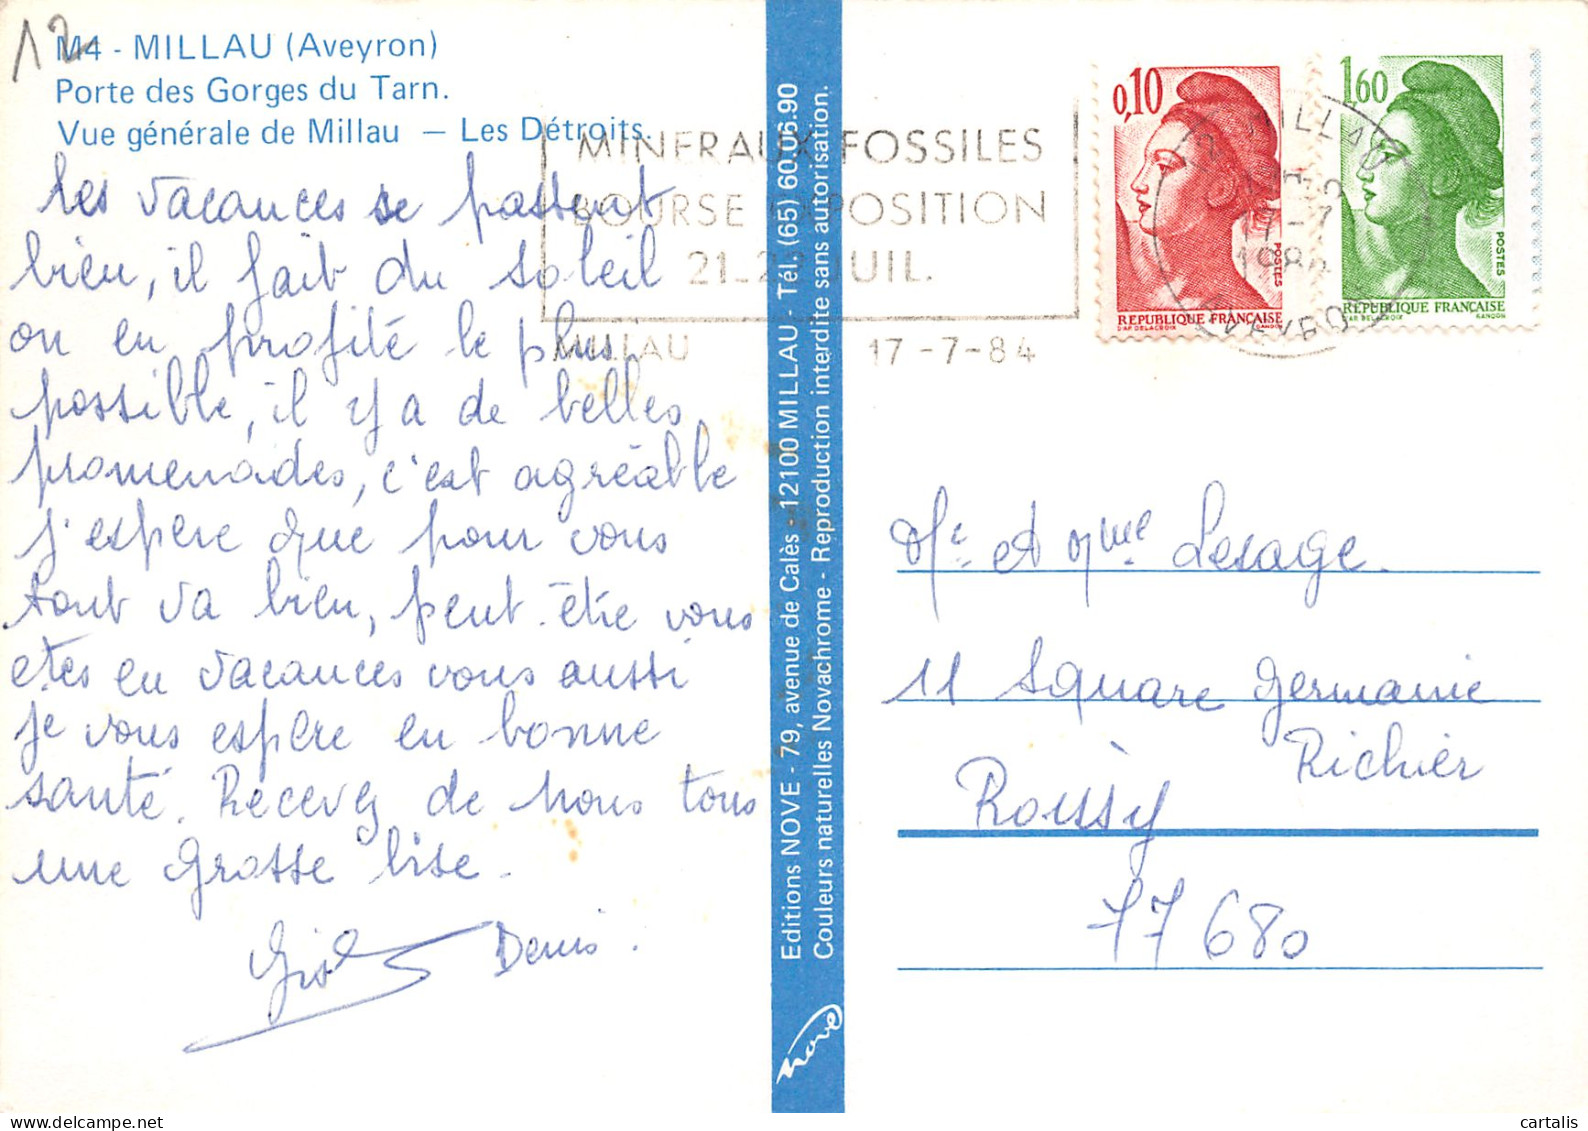 12
M4 - MILLAU (Aveyron)
Porte des Gorges du Tarn.
Vue générale de Millau — Les Détroits.
Les vacances se passent
bien, il fait du soleil
on en profite le plus
possible, il y a de belles
promenades, c'est agréable
j'espère que pour vous
tout va bien, peut-être vous
etes en vacances vous aussi
je vous espère en bonne
santé. Recevez de nous tous
une grosse bise.
Denis.
Editions NOVE - 79, avenue de Calès - 12100 MILLAU - Tél. (65) 60.06.90
Couleurs naturelles Novachrome - Reproduction interdite sans autorisation.
nove
MINERAUX FOSSILES
BOURSE EXPOSITION
21-22 JUIL.
MILLAU 17-7-84
0,10
POSTES
REPUBLIQUE FRANÇAISE
D'AP DELACROIX GANDON
1,60
POSTES
REPUBLIQUE FRANÇAISE
D'AP DELACROIX GANDON
MILLAU
17-7
1984
AVEYRON
Mr et Mme Lesage.
11 Square Germaine
Richier
Roissy
77680
cartalis